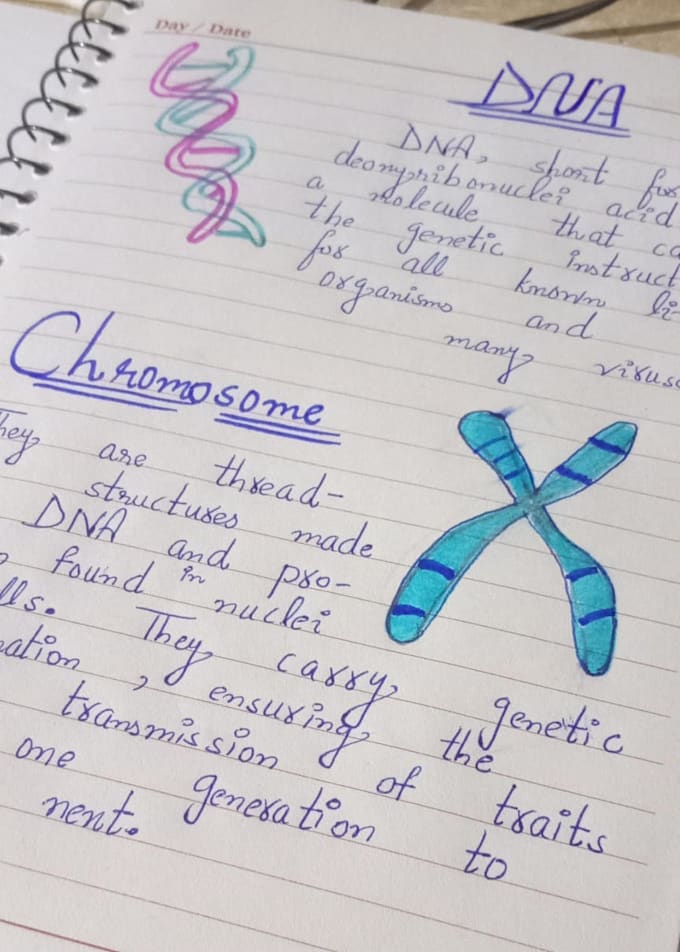 Day / Date
DNA
DNA, short for
deoxyribonuclei acid
a molecule that ca
the genetic instruct
for all known li-
organisms and
many viruse
Chromosome
hey are thread-
structures made
DNA and pro-
found in nuclei
lls. They carry genetic
ation, ensuring the
transmission of traits
one generation to
next.